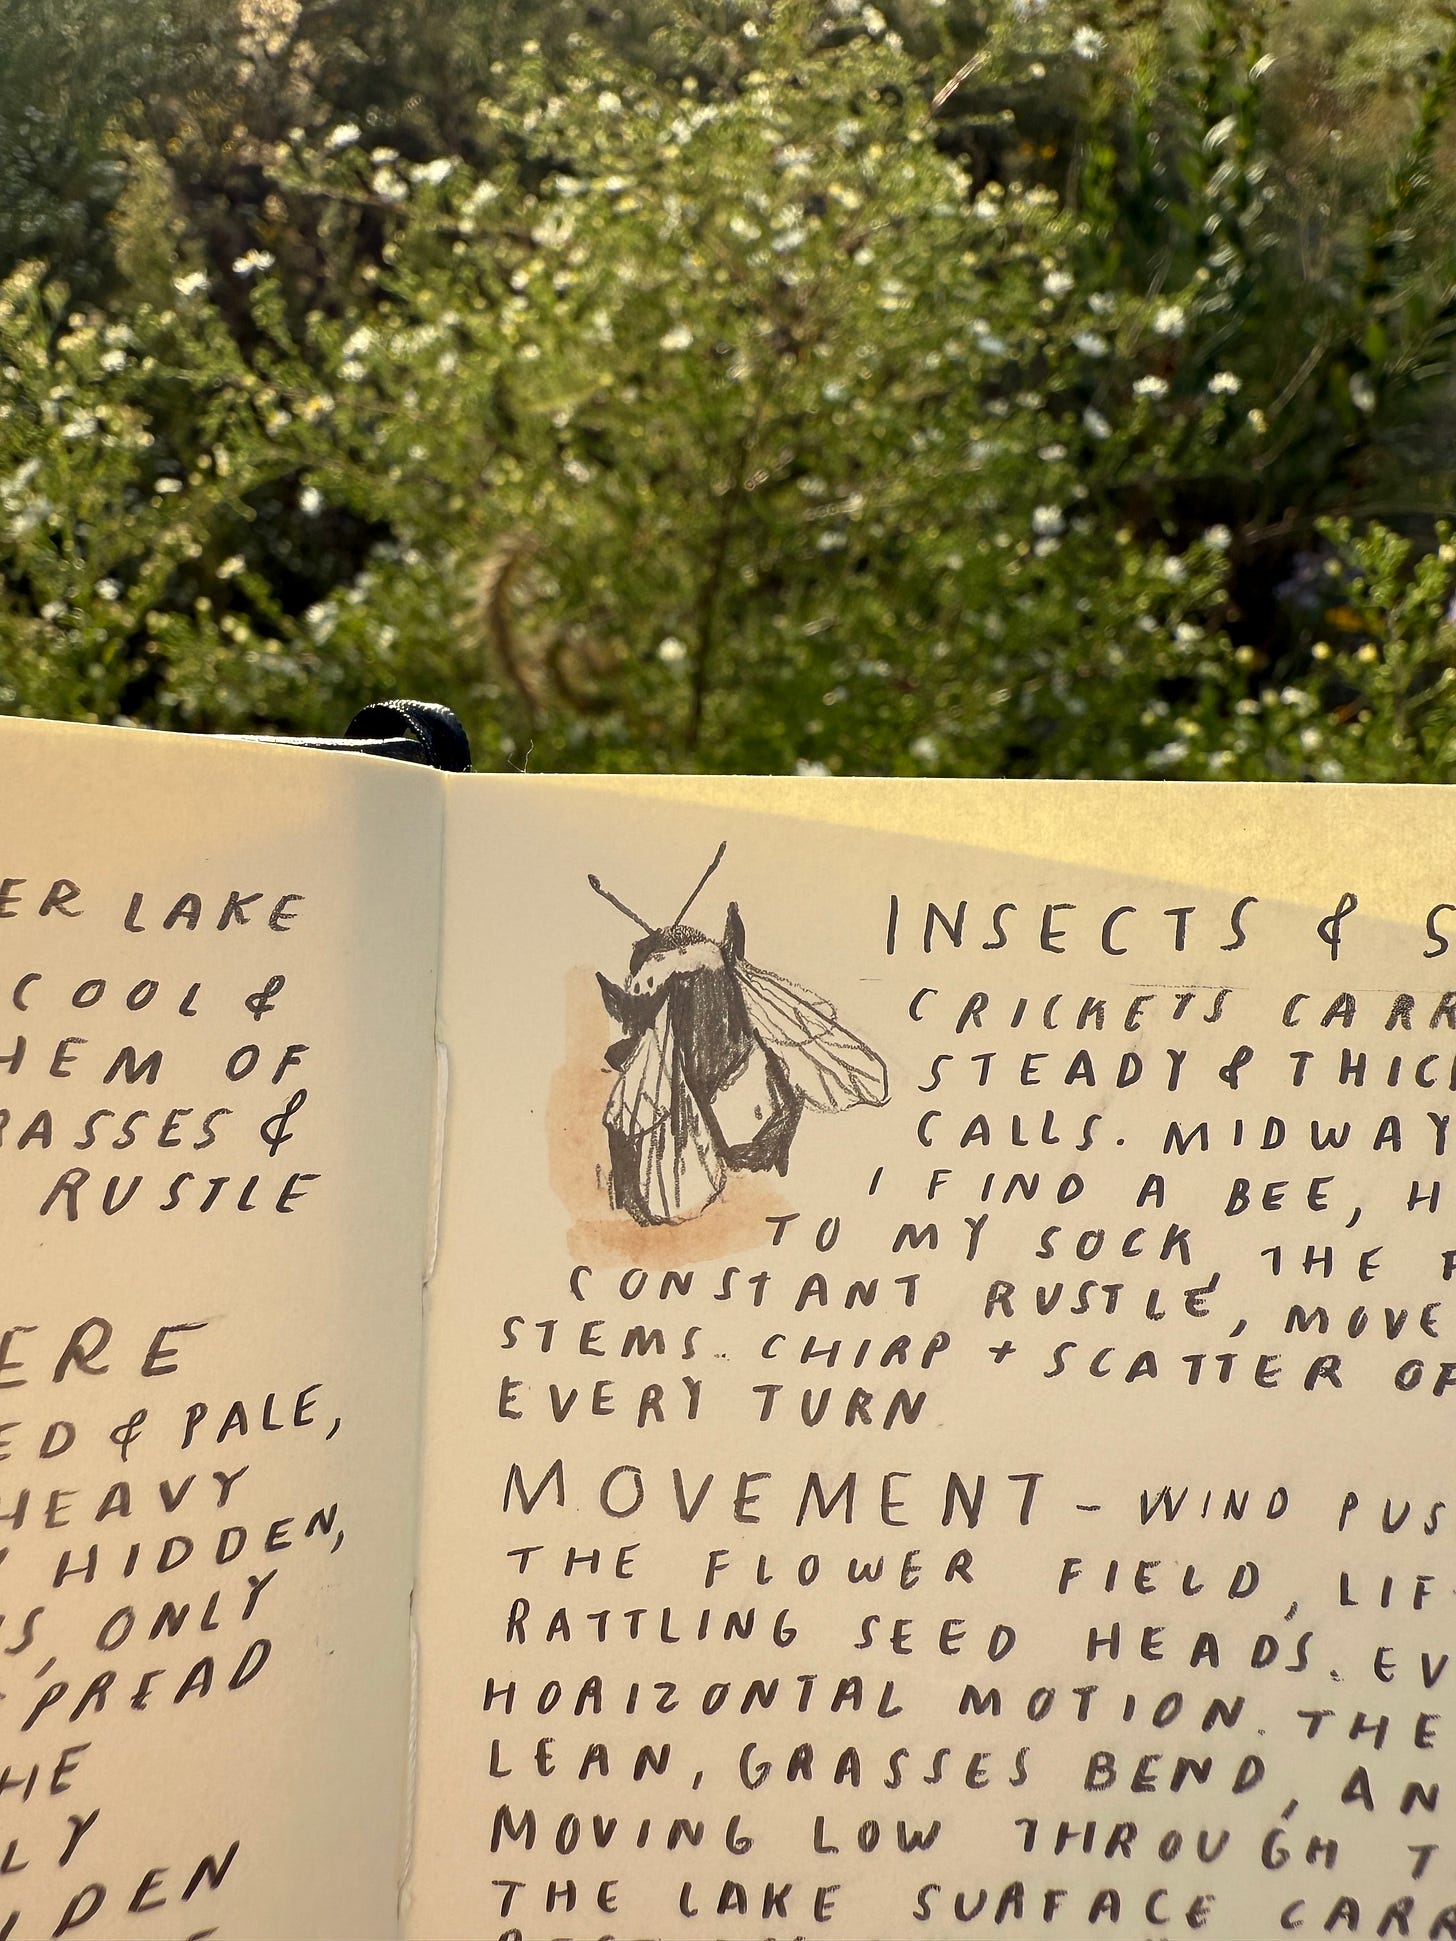 ER LAKE
COOL &
HEM OF
RASSES &
RUSTLE
ERE
ED & PALE,
HEAVY
HIDDEN,
S, ONLY
SPREAD
HE
LY
DEN
INSECTS & S
CRICKETS CARR
STEADY & THICK
CALLS. MIDWAY
I FIND A BEE, H
TO MY SOCK, THE F
CONSTANT RUSTLE, MOVE
STEMS.. CHIRP + SCATTER OF
EVERY TURN
MOVEMENT - WIND PUS
THE FLOWER FIELD, LIF
RATTLING SEED HEADS. EV
HORIZONTAL MOTION. THE
LEAN, GRASSES BEND, AN
MOVING LOW THROUGH T
THE LAKE SURFACE CARR